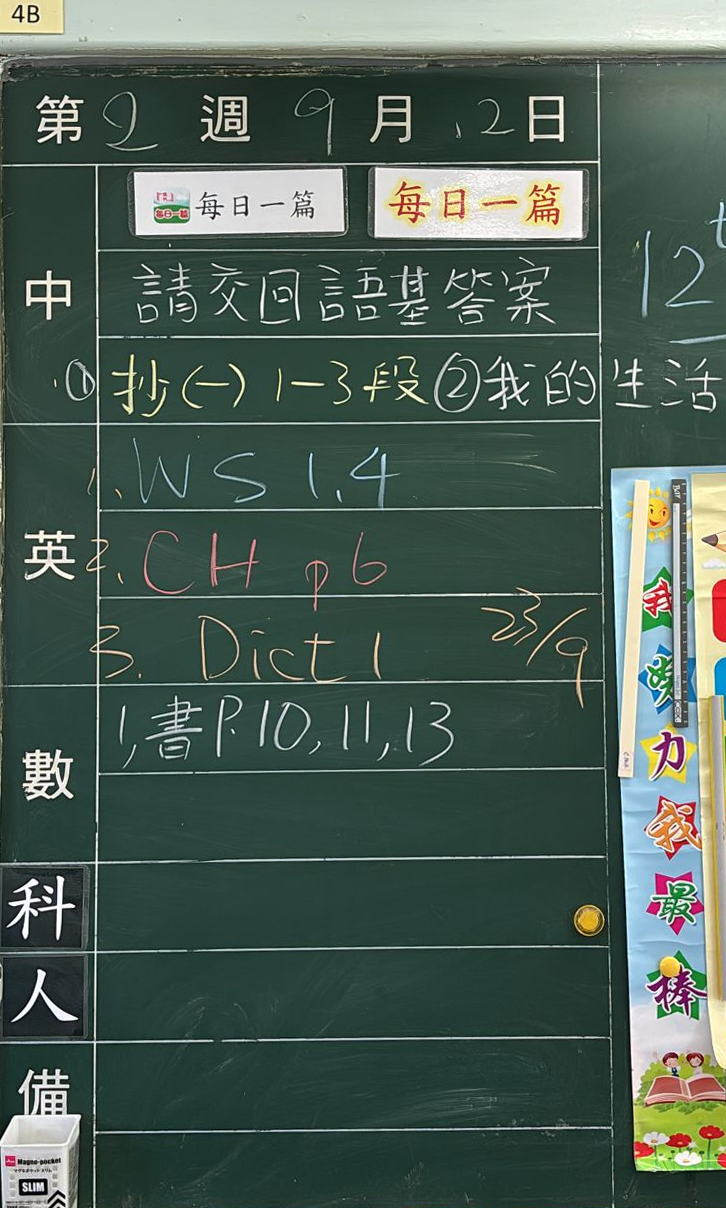 4B
第2週 9月12日
每日一篇 每日一篇
中
請交回語基答案
12
① 抄(一) 1-3段 ②我的生活
英
1. WS 1.4
2. CH p6
3. Dict 1 23/9
數
1, 書P.10, 11, 13
科
人
備
Magne-pocket
SLIM
我
力
我
最
棒